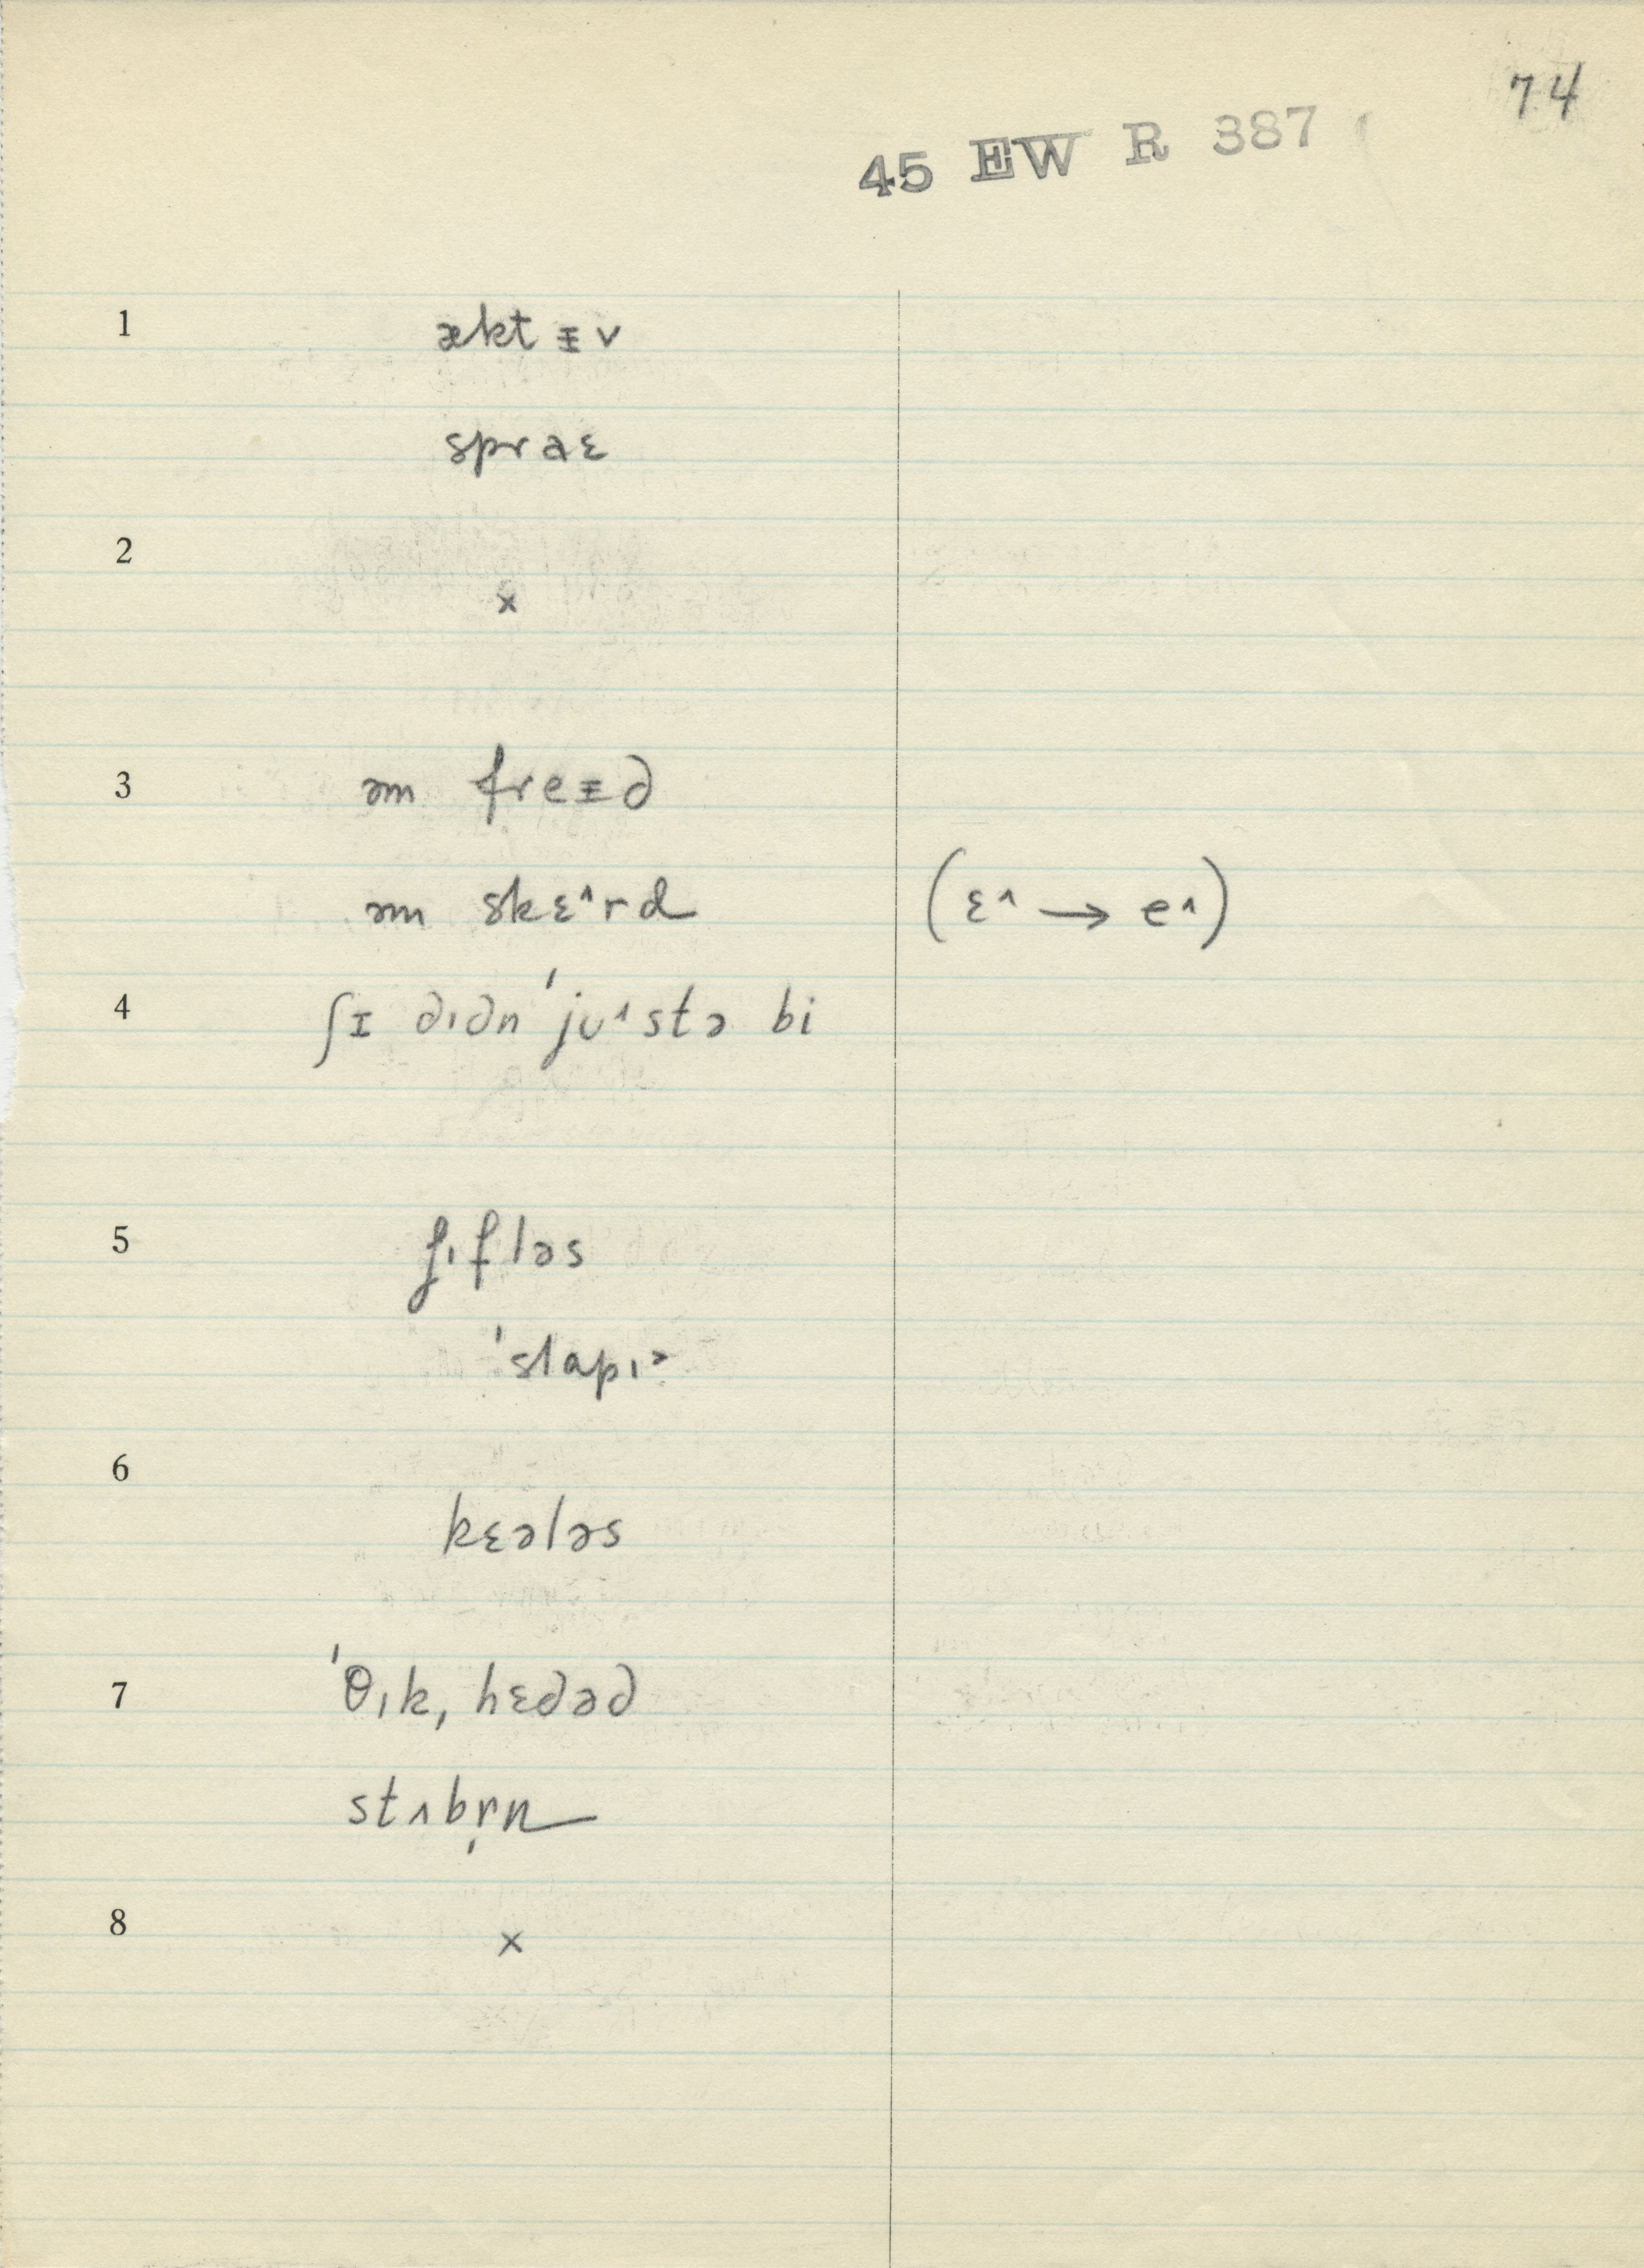 74
45 EW R 387
1 æktᵻv
spraɛ
2
×
3 əm freᵻd
əm skɛ^rd (ɛ^ → e^)
4 ʃɪ dɪdn ˈjʊ^stə bi
5 fɪfləs
ˈslapɪ>
6
kɛələs
7 ˈθɪk, hɛdəd
stʌbr̩n
8 ×